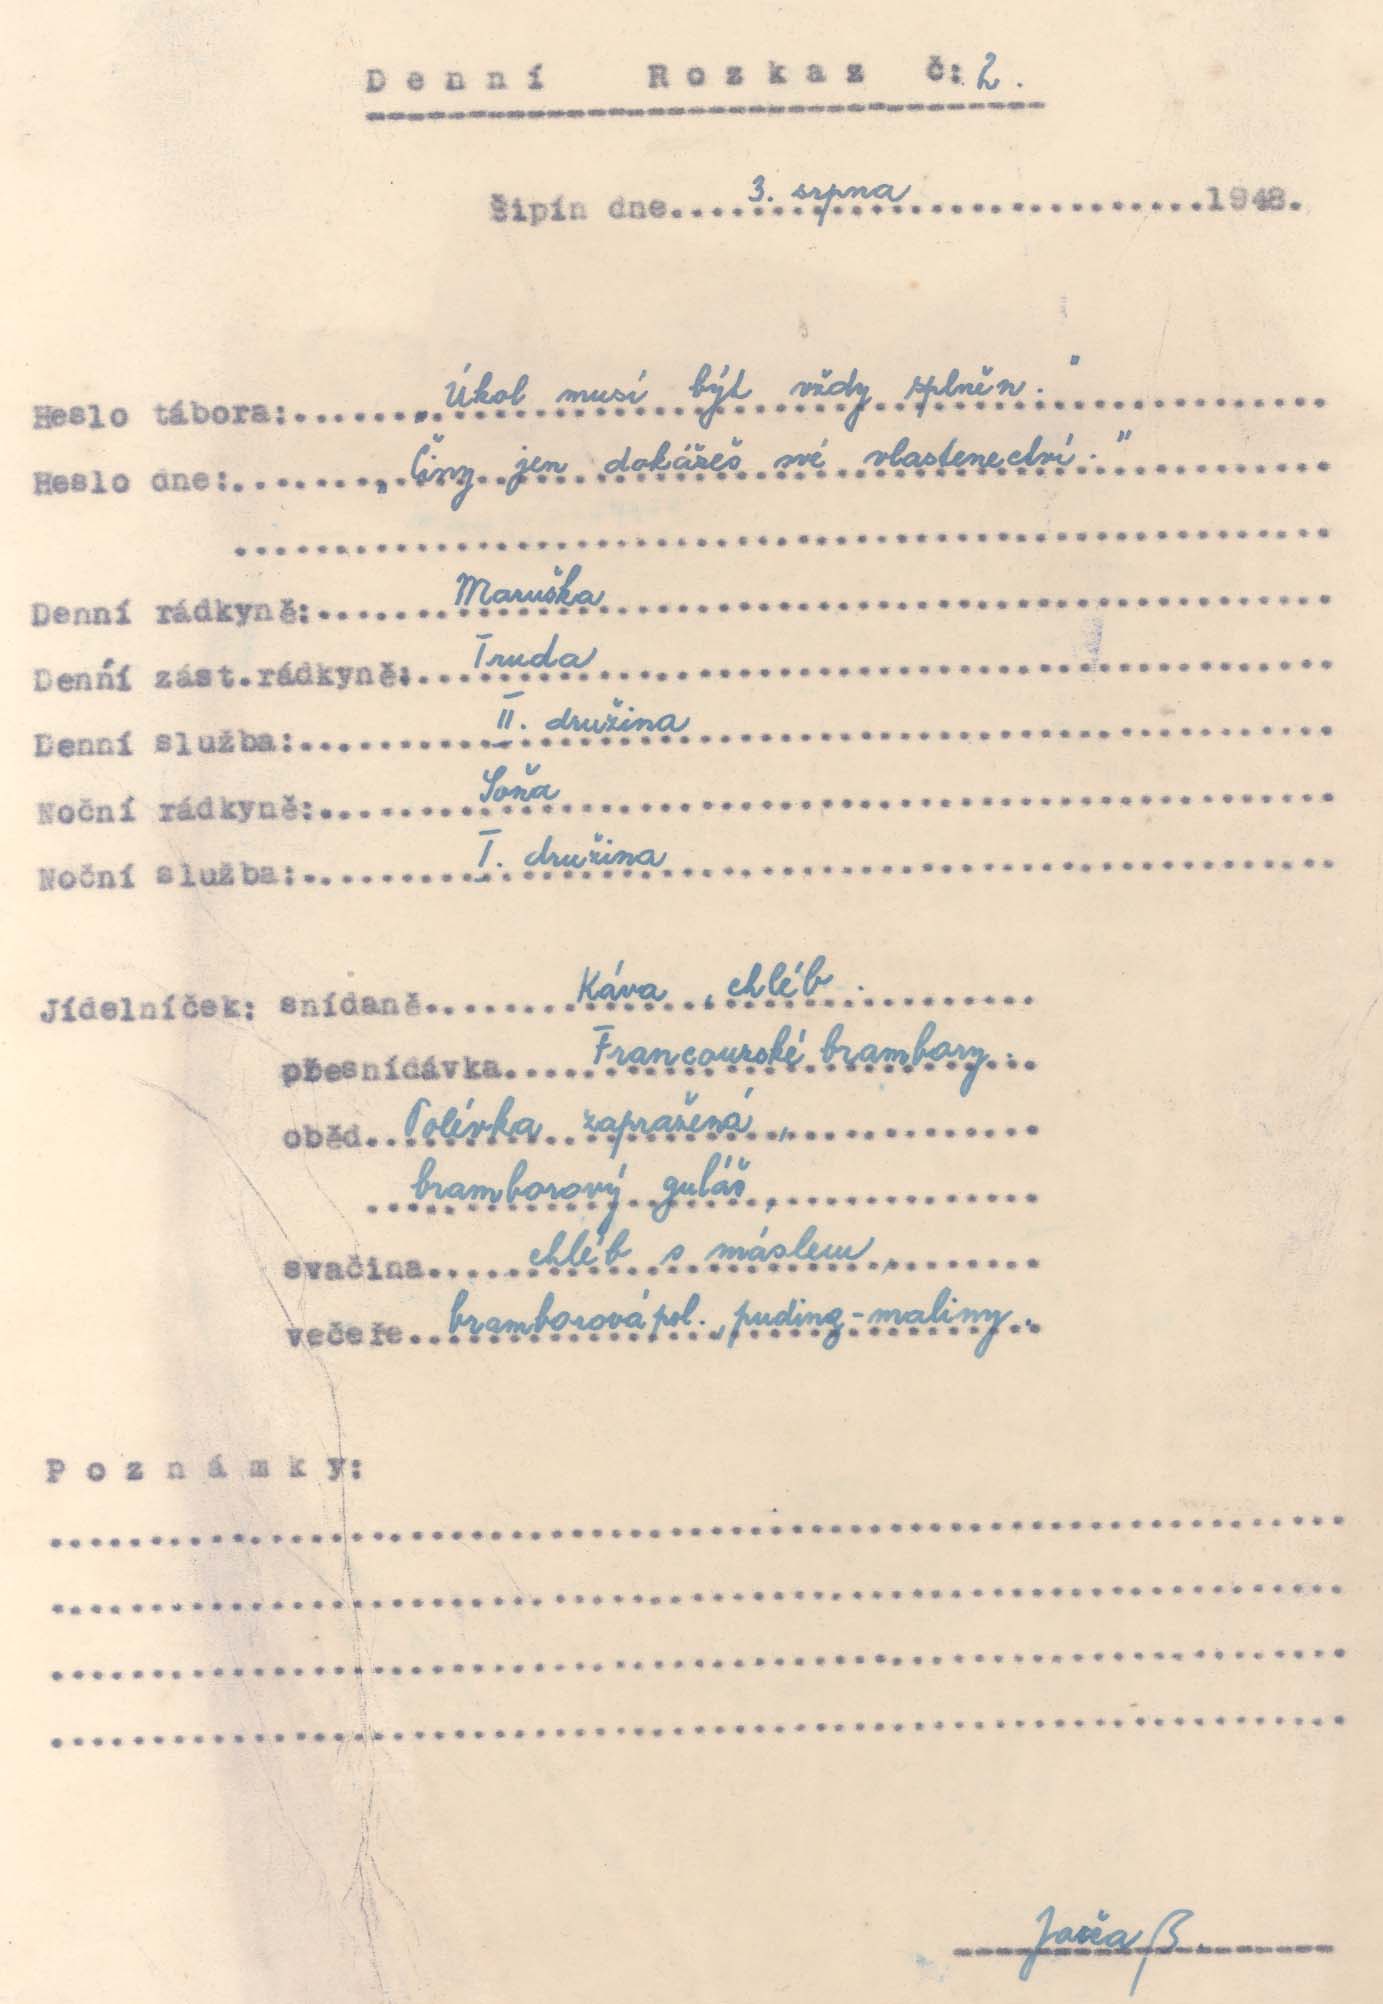 Denní Rozkaz č: 2.
Šipín dne....3. srpna....1948.
Heslo tábora:...."Úkol musí být vždy splněn."
Heslo dne:...."Činy jen dokážeš své vlastenectví."
Denní rádkyně:....Maruška
Denní zást.rádkyně:....Truda
Denní služba:....II. družina
Noční rádkyně:....Soňa
Noční služba:....I. družina
Jídelníček: snídaně....Káva, chléb.
přesnídávka....Francouzské brambory.
oběd....Polévka zapražená,
bramborový guláš,
svačina....chléb s máslem,
večeře....bramborová pol., puding - maliny.
Poznámky:
B.